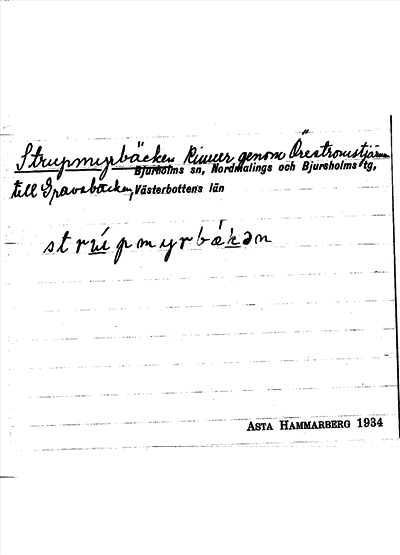 Strupmyrbäcken rinner genom Öreströmstjärnen
Bjurholms sn, Nordmalings och Bjursholms tg,
till Spavabäcken, Västerbottens län
strúpmyrbǽkən
ASTA HAMMARBERG 1934